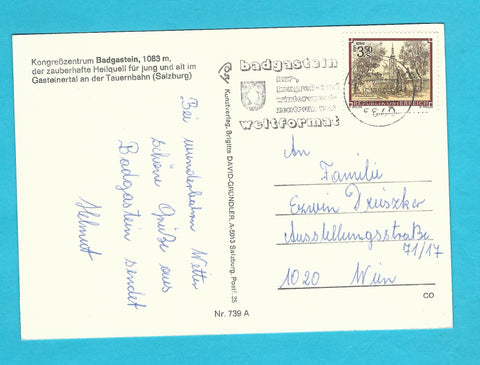 Kongreßzentrum Badgastein, 1083 m,
der zauberhafte Heilquell für jung und alt im
Gasteinertal an der Tauernbahn (Salzburg)
Bei wunderbarem Wetter
schöne Grüße aus
Badgastein sendet
Helmut
Kunstverlag, Brigitte DAVID-GRÜNDLER, A-5013 Salzburg, Postf. 35
Nr. 739 A
badgastein
kur-,
kongreß- und
wintersport-
zentrum von
weltformat
3.50
REPUBLIK ÖSTERREICH
An
Familie
Erwin
Ausstellungsstraße
71/17
1020 Wien
CO